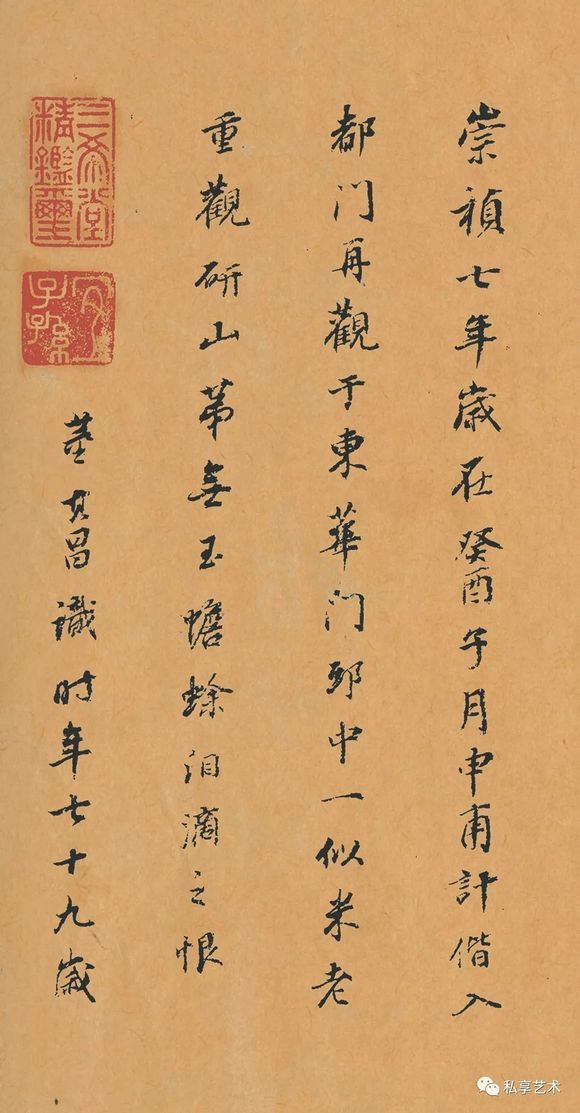 崇禎七年歲在癸酉子月申甫計偕入
都門再觀于東華門邸中一似米老
重觀研山第無玉蟾蜍泪滴之恨
董其昌識時年七十九歲
三希堂精鑑璽
宜子孫
私享艺术